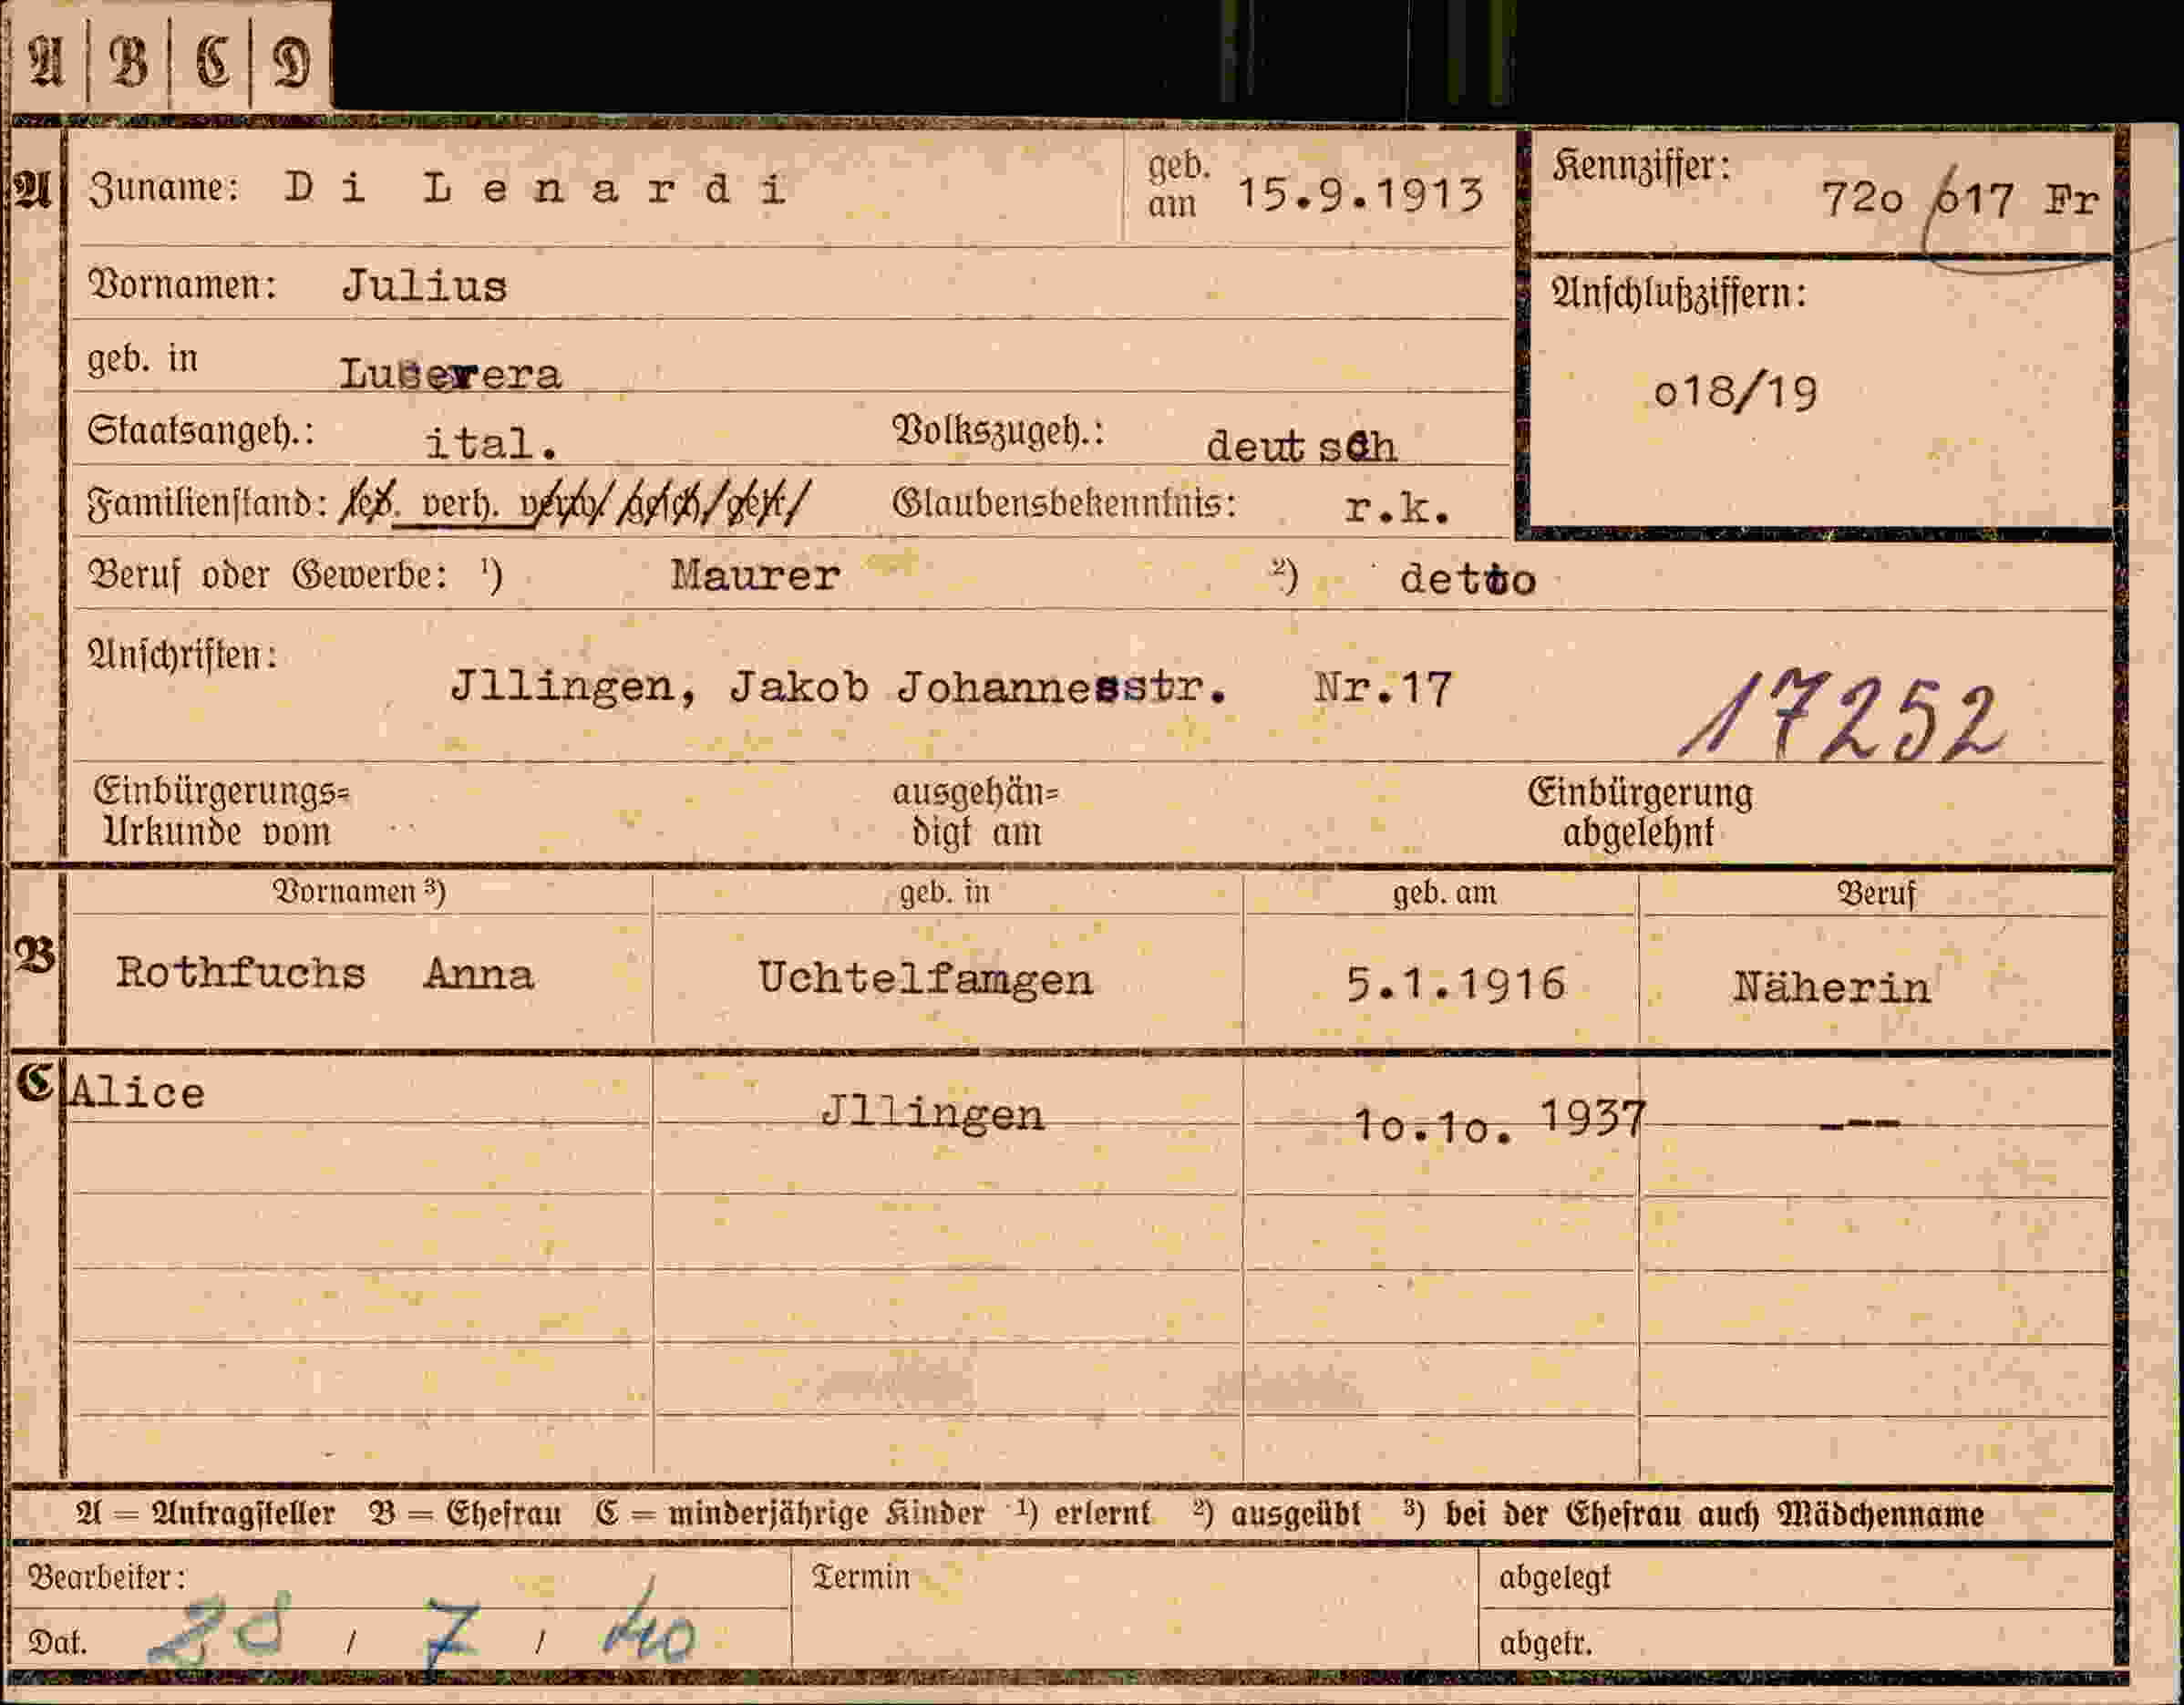 A B C D
A Zuname: Di Lenardi geb. am 15.9.1913 Kennziffer: 72o o17 Fr
Vornamen: Julius Anschlußziffern:
geb. in
o18/19
Staatsangeh.: ital. Volkszugeh.: deutsch
Familienstand: led. verh. verw. gesch. get. Glaubensbekenntnis: r.k.
Beruf oder Gewerbe: ¹) Maurer ²) detto
Anschriften: Jllingen, Jakob Johannesstr. Nr.17 17252
Einbürgerungs= Urkunde vom ausgehän= digt am Einbürgerung abgelehnt
Vornamen ³) geb. in geb. am Beruf
B Rothfuchs Anna Uchtelfamgen 5.1.1916 Näherin
C Alice Jllingen 1o.1o. 1937 ---
A = Antragsteller B = Ehefrau C = minderjährige Kinder ¹) erlernt ²) ausgeübt ³) bei der Ehefrau auch Mädchenname
Bearbeiter: Termin abgelegt
Dat. 28 / 7 / 40 abgetr.